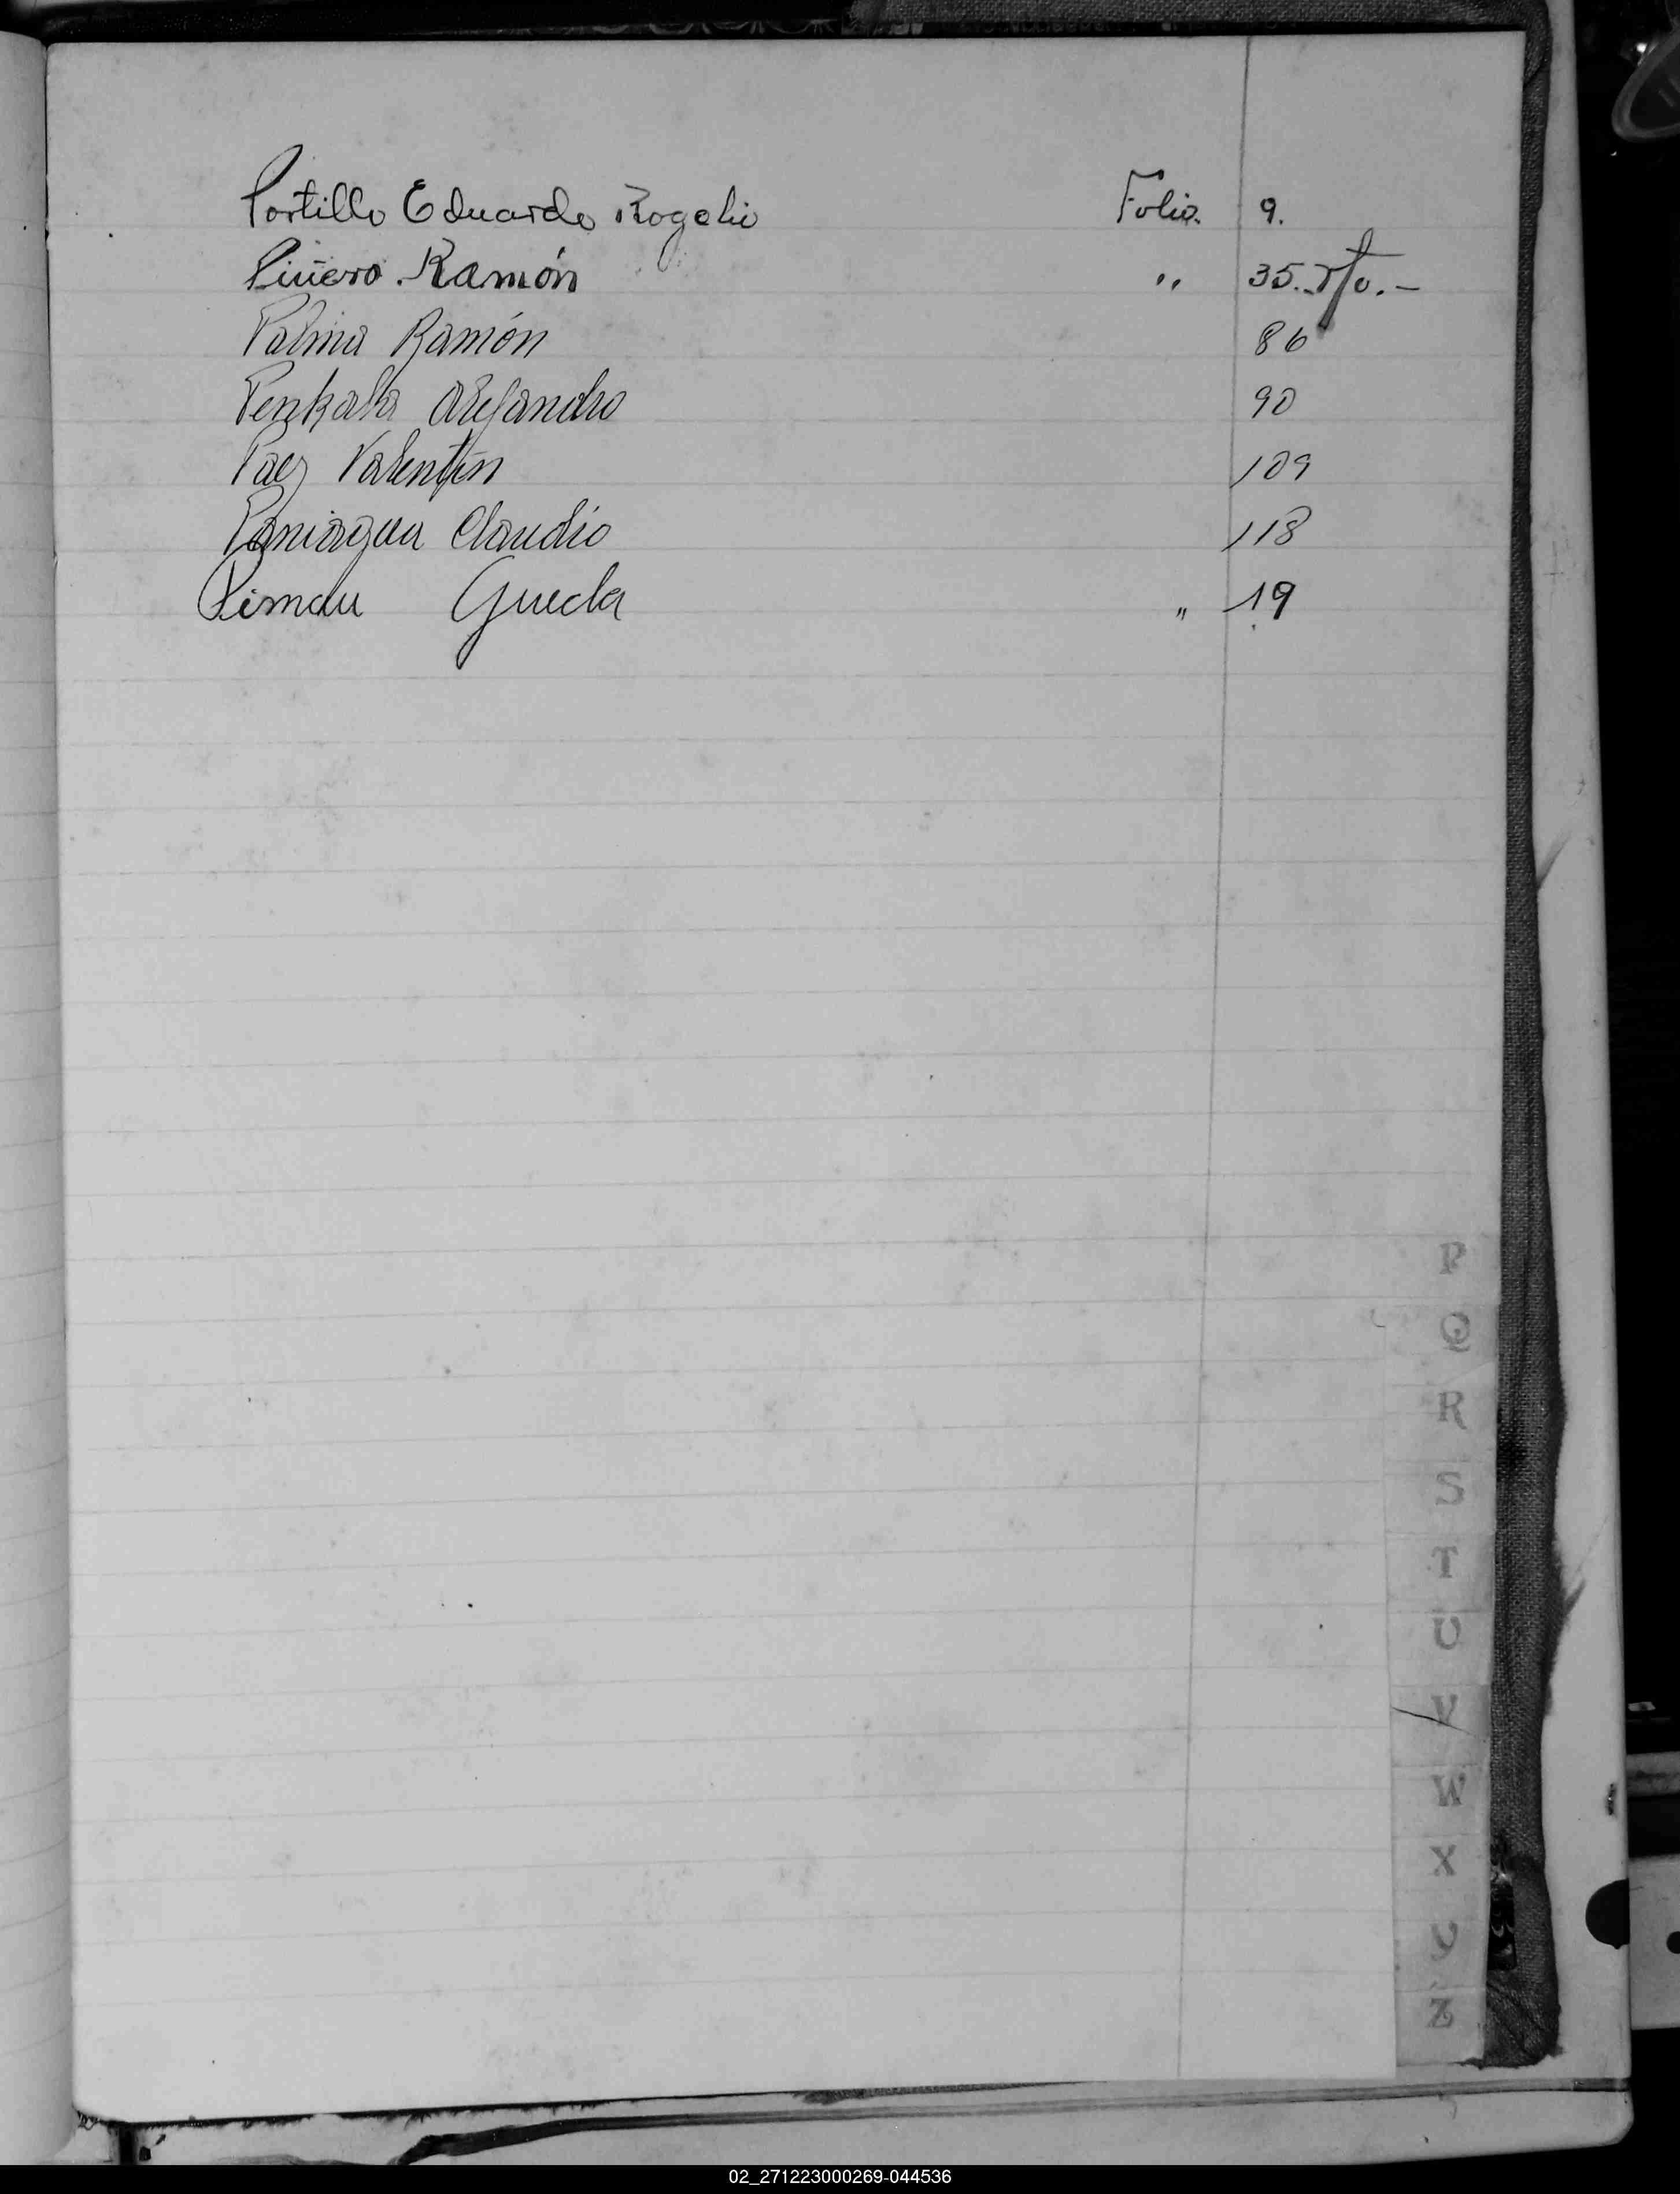 Portillo Eduardo Rogelio Folio. 9.
Piñero Ramón " 35. Vto. –
Palma Ramón 86
Penkala Alejandro 90
Paez Valentín 109
Paniagua Claudio 118
Gueda " 19
P
Q
R
S
T
U
V
W
X
Y
Z
02_271223000269-044536